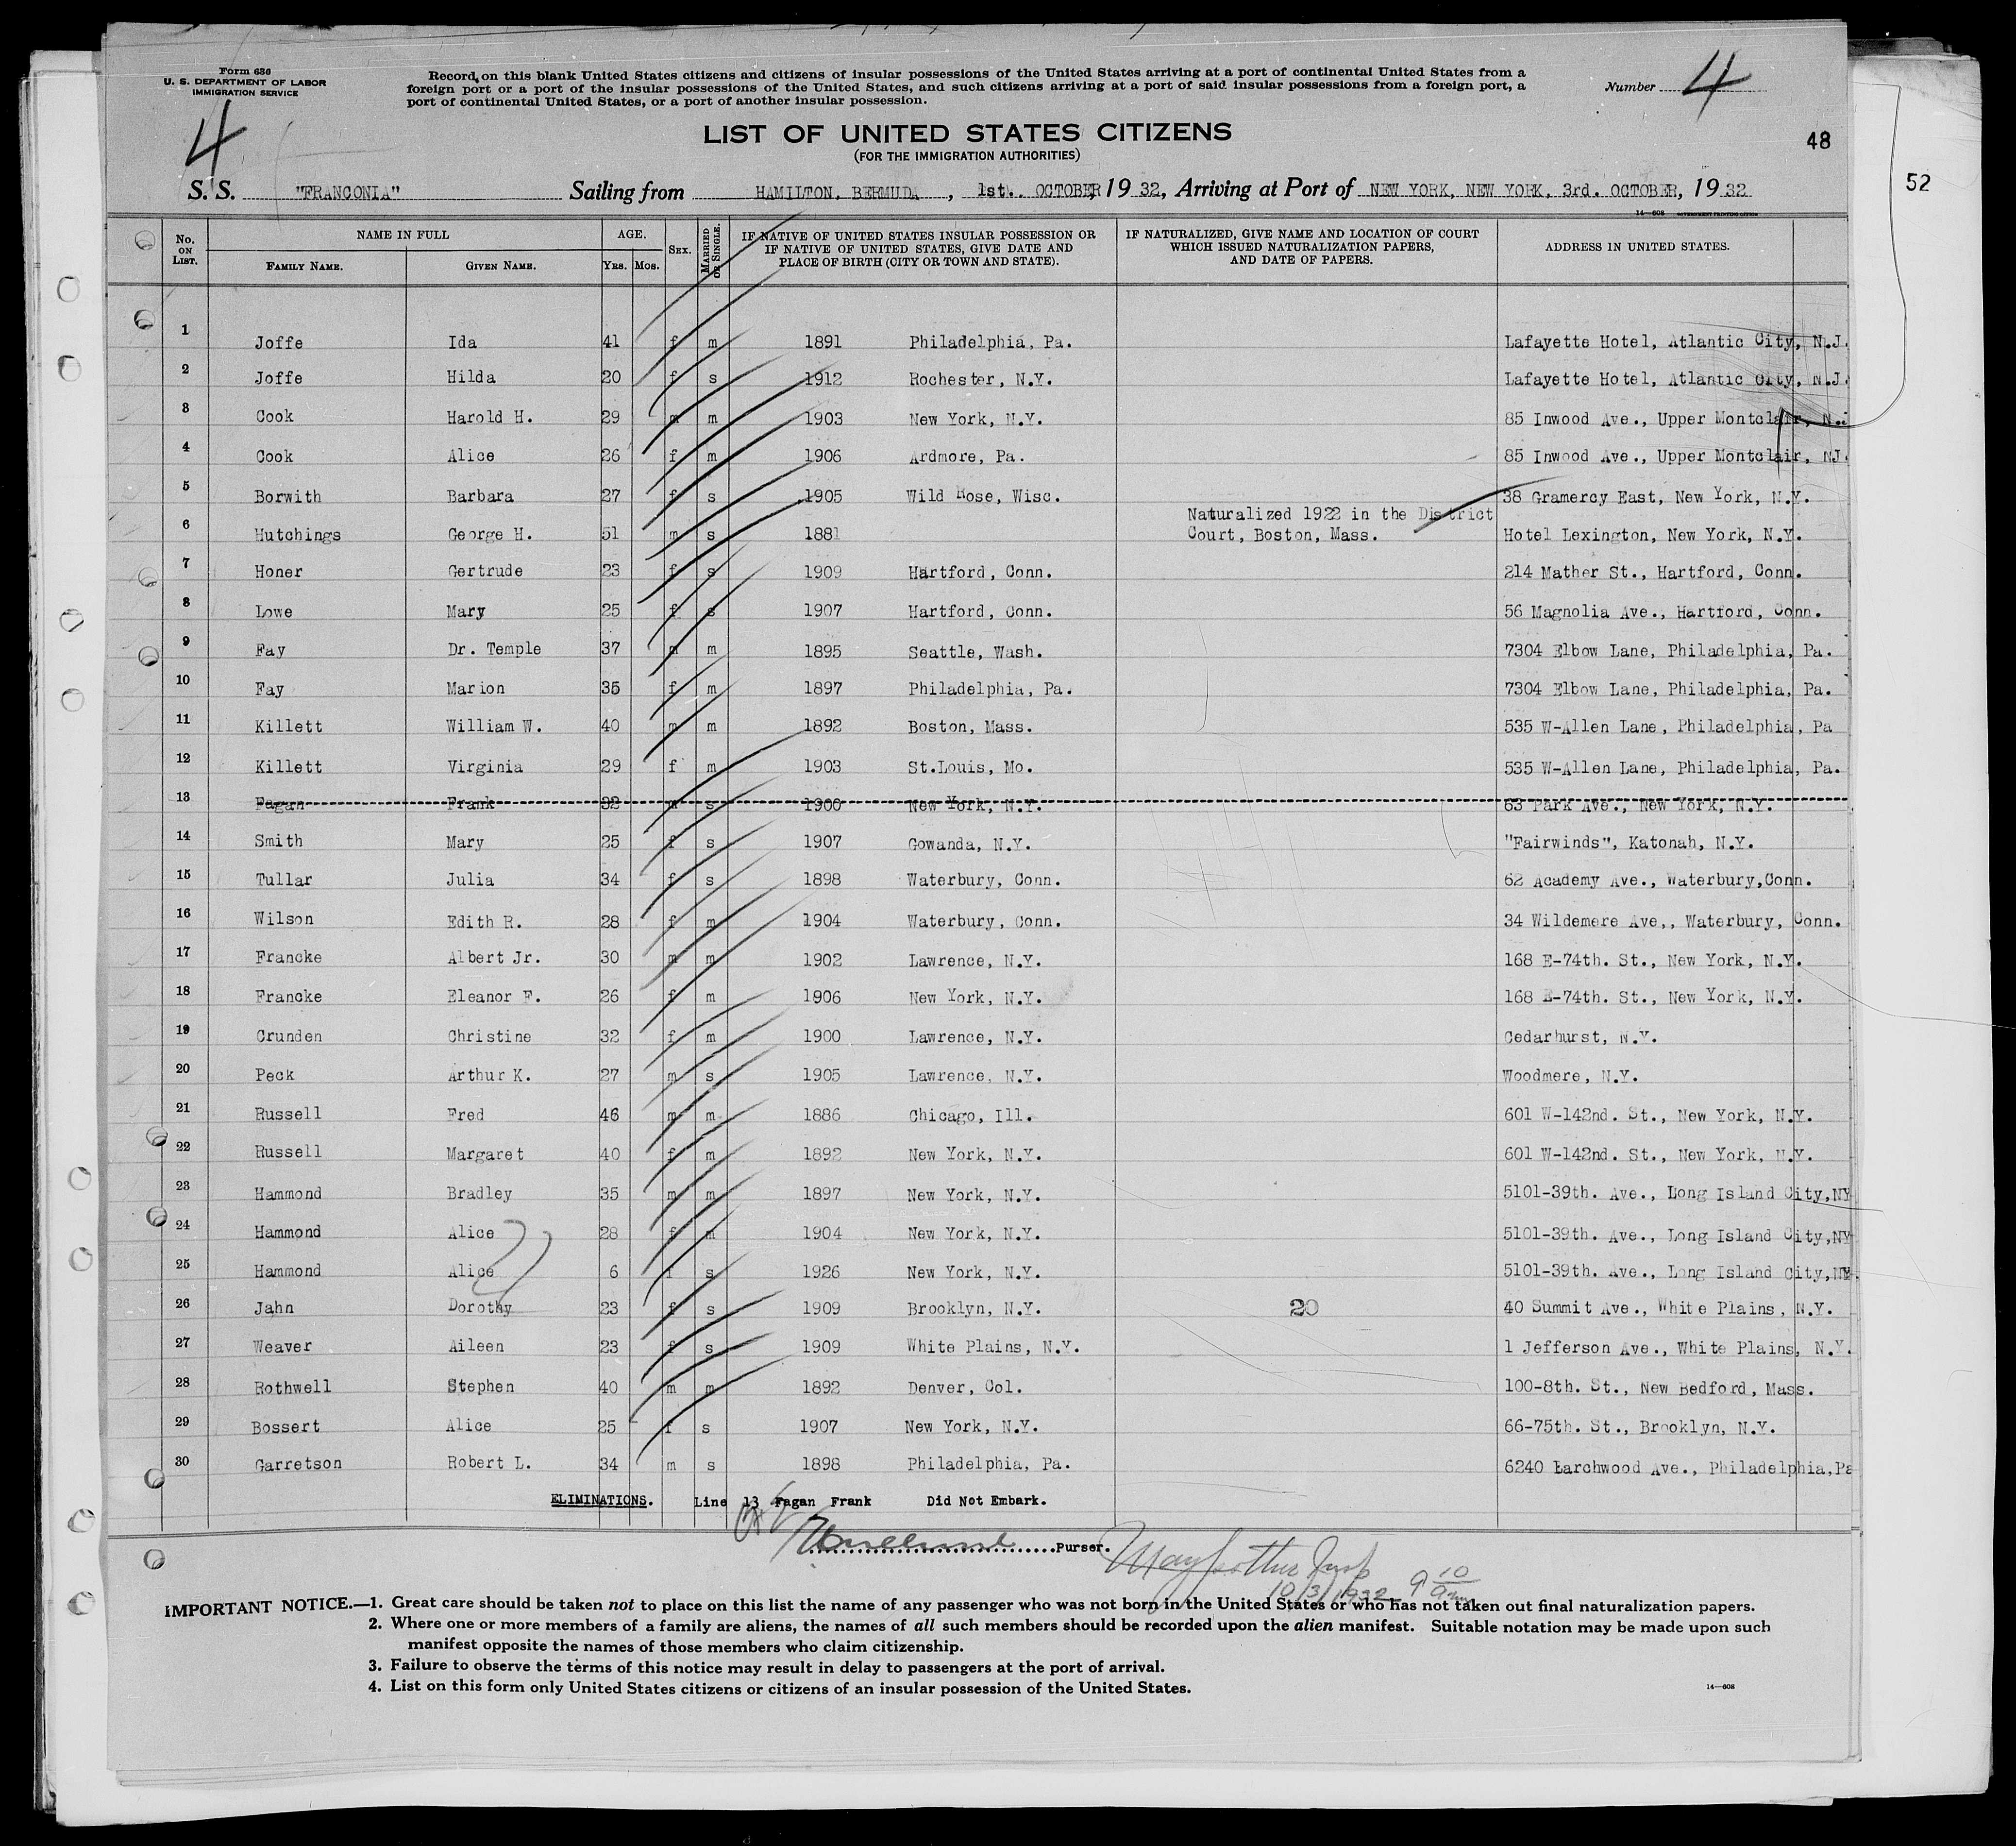 Form 636
U. S. DEPARTMENT OF LABOR
IMMIGRATION SERVICE
Record on this blank United States citizens and citizens of insular possessions of the United States arriving at a port of continental United States from a
foreign port or a port of the insular possessions of the United States, and such citizens arriving at a port of said insular possessions from a foreign port, a
port of continental United States, or a port of another insular possession.
Number 4
4
LIST OF UNITED STATES CITIZENS
(FOR THE IMMIGRATION AUTHORITIES)
48
52
S. S. "FRANCONIA" Sailing from HAMILTON, BERMUDA, 1st. OCTOBER, 19 32, Arriving at Port of NEW YORK, NEW YORK, 3rd. OCTOBER, 19 32
14—608 GOVERNMENT PRINTING OFFICE
No. ON LIST. NAME IN FULL FAMILY NAME. GIVEN NAME. AGE. YRS. MOS. SEX. MARRIED OR SINGLE. IF NATIVE OF UNITED STATES INSULAR POSSESSION OR IF NATIVE OF UNITED STATES, GIVE DATE AND PLACE OF BIRTH (CITY OR TOWN AND STATE). IF NATURALIZED, GIVE NAME AND LOCATION OF COURT WHICH ISSUED NATURALIZATION PAPERS, AND DATE OF PAPERS. ADDRESS IN UNITED STATES.
1 Joffe Ida 41 f m 1891 Philadelphia, Pa. Lafayette Hotel, Atlantic City, N.J.
2 Joffe Hilda 20 f s 1912 Rochester, N.Y. Lafayette Hotel, Atlantic City, N.J.
3 Cook Harold H. 29 m m 1903 New York, N.Y. 85 Inwood Ave., Upper Montclair, N.J
4 Cook Alice 26 f m 1906 Ardmore, Pa. 85 Inwood Ave., Upper Montclair, NJ.
5 Borwith Barbara 27 f s 1905 Wild Rose, Wisc. 38 Gramercy East, New York, N.Y.
6 Hutchings George H. 51 m s 1881 Naturalized 1922 in the District Court, Boston, Mass. Hotel Lexington, New York, N.Y.
7 Honer Gertrude 23 f s 1909 Hartford, Conn. 214 Mather St., Hartford, Conn.
8 Lowe Mary 25 f s 1907 Hartford, Conn. 56 Magnolia Ave., Hartford, Conn.
9 Fay Dr. Temple 37 m m 1895 Seattle, Wash. 7304 Elbow Lane, Philadelphia, Pa.
10 Fay Marion 35 f m 1897 Philadelphia, Pa. 7304 Elbow Lane, Philadelphia, Pa.
11 Killett William W. 40 m m 1892 Boston, Mass. 535 W-Allen Lane, Philadelphia, Pa
12 Killett Virginia 29 f m 1903 St.Louis, Mo. 535 W-Allen Lane, Philadelphia, Pa.
13 Fagan Frank 32 m s 1900 New York, N.Y. 63 Park Ave., New York, N.Y.
14 Smith Mary 25 f s 1907 Gowanda, N.Y. "Fairwinds", Katonah, N.Y.
15 Tullar Julia 34 f s 1898 Waterbury, Conn. 62 Academy Ave., Waterbury,Conn.
16 Wilson Edith R. 28 f m 1904 Waterbury, Conn. 34 Wildemere Ave,, Waterbury, Conn.
17 Francke Albert Jr. 30 m m 1902 Lawrence, N.Y. 168 E-74th. St., New York, N.Y.
18 Francke Eleanor F. 26 f m 1906 New York, N.Y. 168 E-74th. St., New York, N.Y.
19 Crunden Christine 32 f m 1900 Lawrence, N.Y. Cedarhurst, N.Y.
20 Peck Arthur K. 27 m s 1905 Lawrence, N.Y. Woodmere, N.Y.
21 Russell Fred 46 m m 1886 Chicago, Ill. 601 W-142nd. St., New York, N.Y.
22 Russell Margaret 40 f m 1892 New York, N.Y. 601 W-142nd. St., New York, N.Y.
23 Hammond Bradley 35 m m 1897 New York, N.Y. 5101-39th. Ave., Long Island City,NY
24 Hammond Alice 28 f m 1904 New York, N.Y. 5101-39th. Ave., Long Island City,NY
25 Hammond Alice 6 f s 1926 New York, N.Y. 5101-39th. Ave., Long Island City,NY.
26 Jahn Dorothy 23 f s 1909 Brooklyn, N.Y. 20 40 Summit Ave., White Plains, N.Y.
27 Weaver Aileen 23 f s 1909 White Plains, N.Y. 1 Jefferson Ave., White Plains, N.Y.
28 Rothwell Stephen 40 m m 1892 Denver, Col. 100-8th. St., New Bedford, Mass.
29 Bossert Alice 25 f s 1907 New York, N.Y. 66-75th. St., Brooklyn, N.Y.
30 Garretson Robert L. 34 m s 1898 Philadelphia, Pa. 6240 Larchwood Ave., Philadelphia,Pa
ELIMINATIONS. Line 13 Fagan Frank Did Not Embark.
Purser.
10/3/1932 9 10 am
IMPORTANT NOTICE.—1. Great care should be taken not to place on this list the name of any passenger who was not born in the United States or who has not taken out final naturalization papers.
2. Where one or more members of a family are aliens, the names of all such members should be recorded upon the alien manifest. Suitable notation may be made upon such
manifest opposite the names of those members who claim citizenship.
3. Failure to observe the terms of this notice may result in delay to passengers at the port of arrival.
4. List on this form only United States citizens or citizens of an insular possession of the United States.
14—608